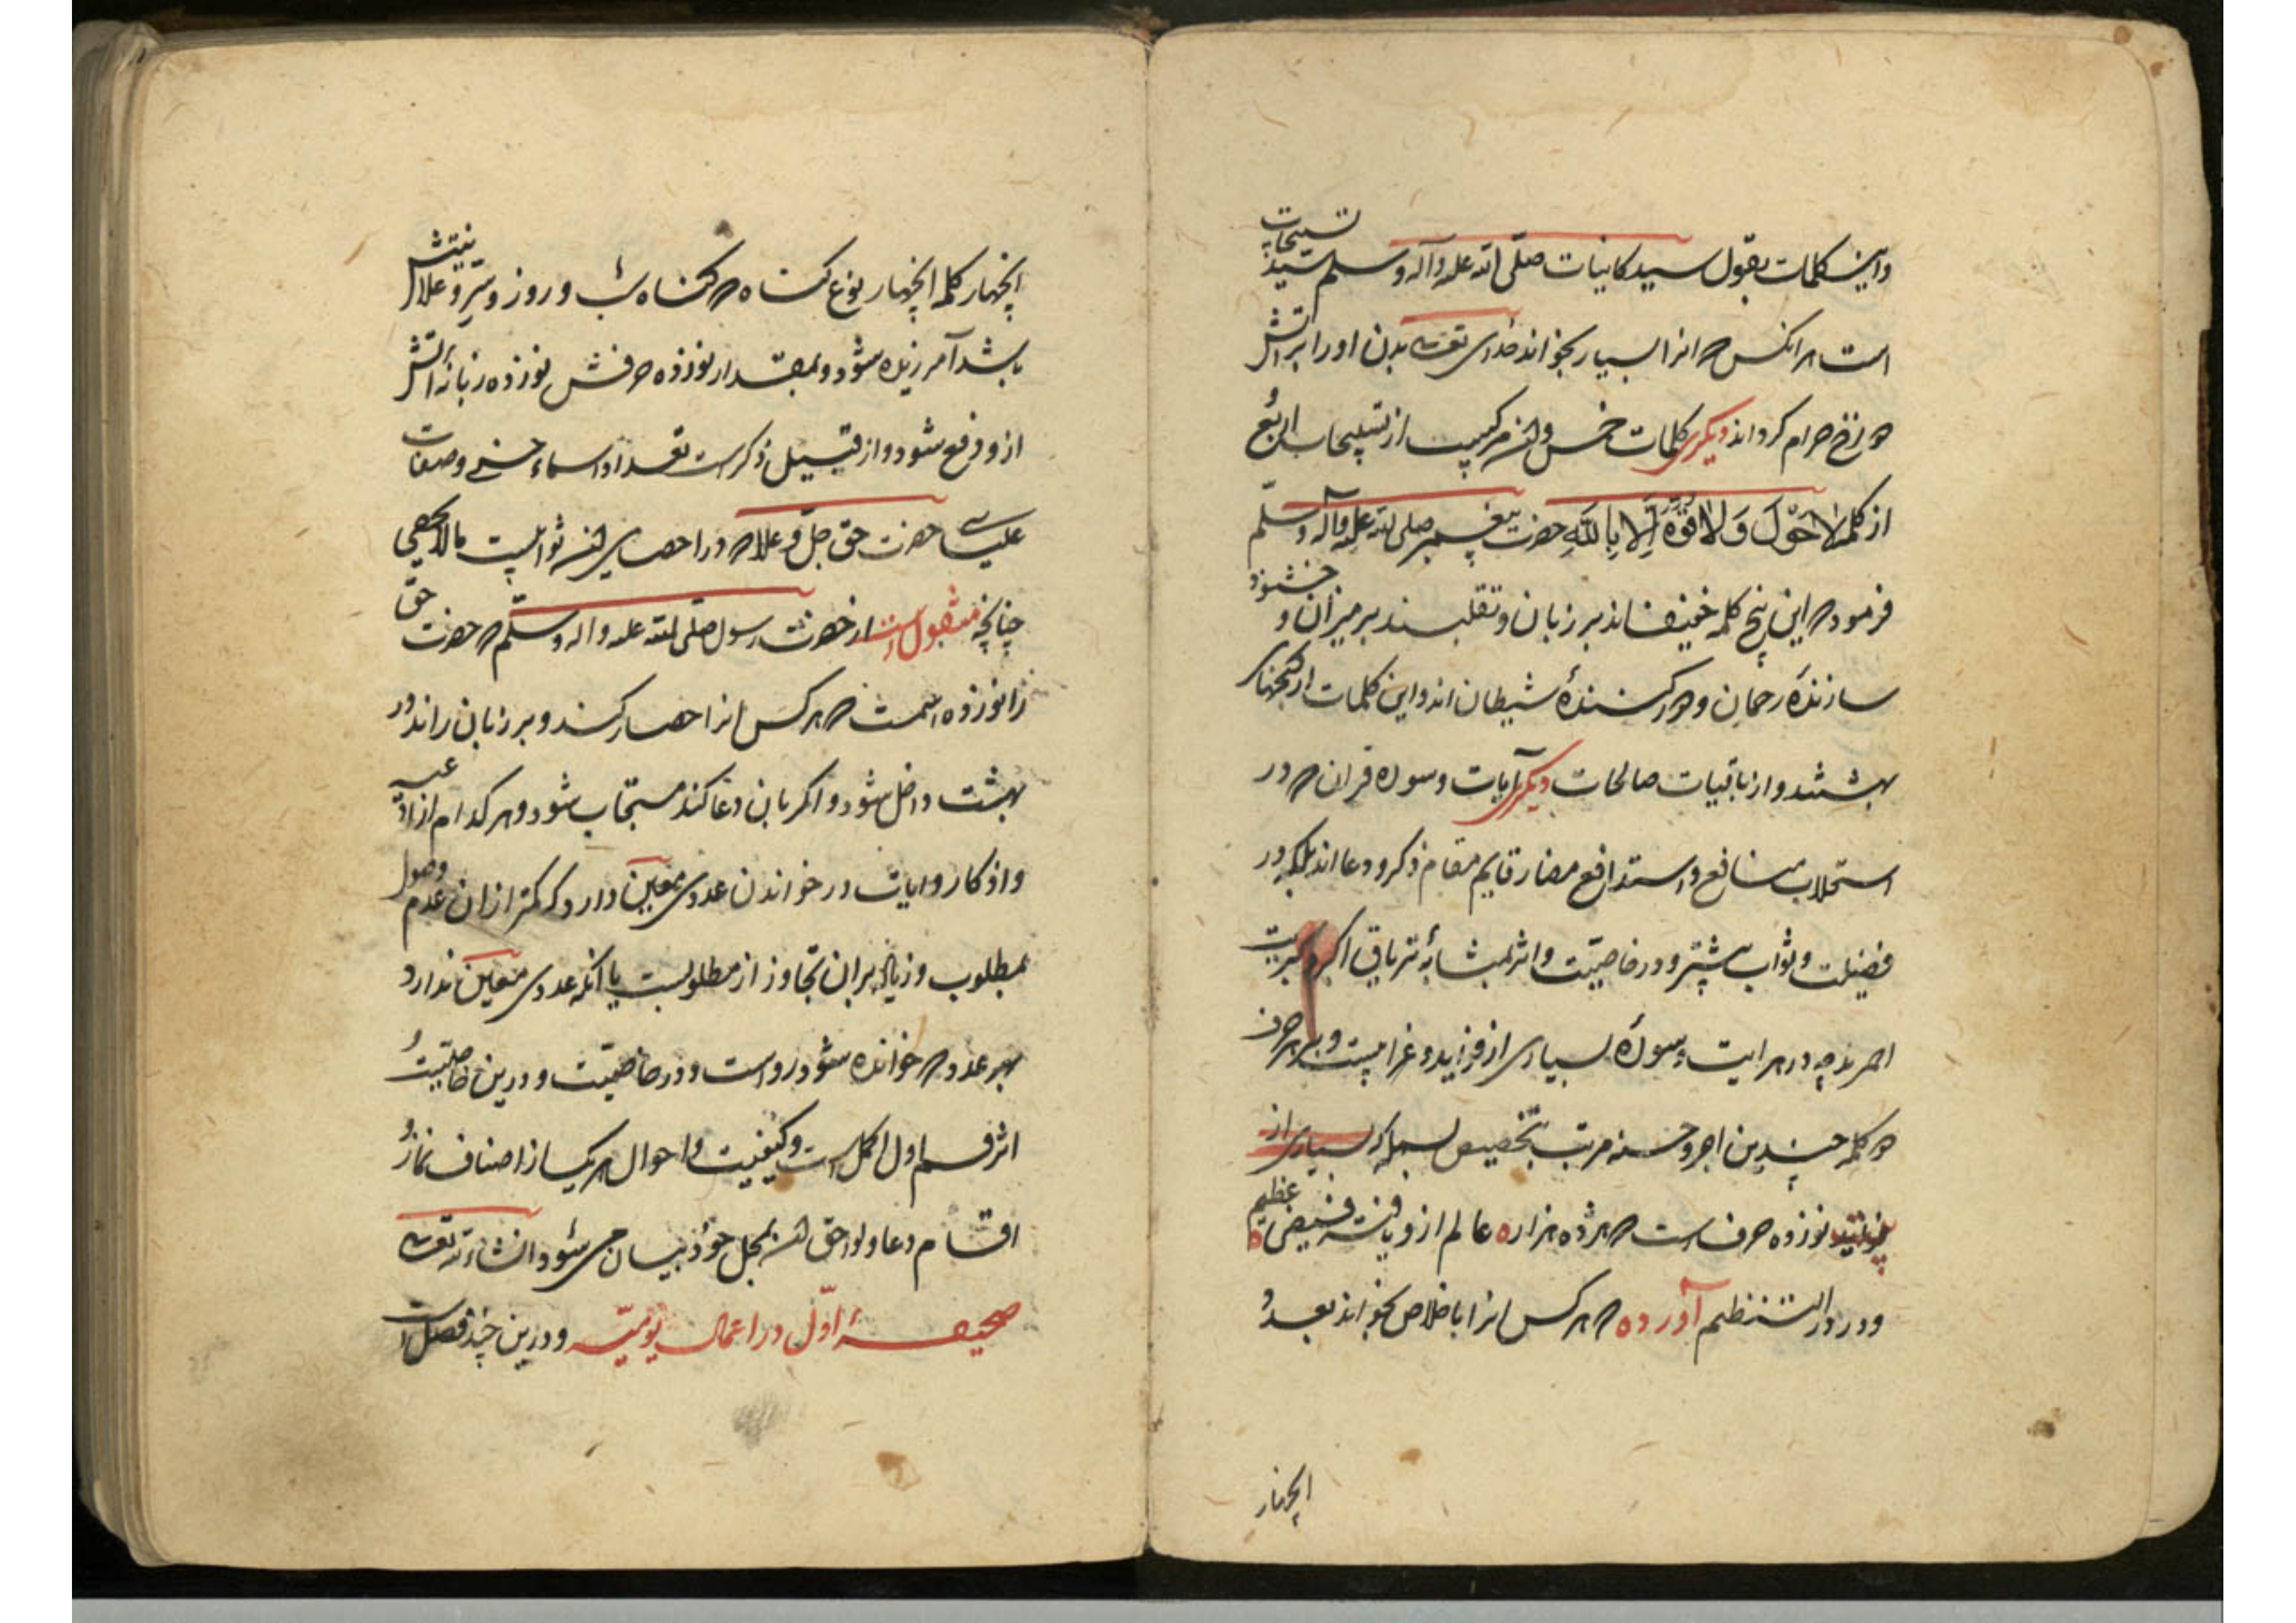 واین کلمات بقول سید کاینات صلی الله علیه وآله وسلم سید تسبیحات
است هر انکس که انرا بسیار بخواند خدای تعالی بدن اورا بر اتش
دوزخ حرام کرداند دیکری کلمات خمس وان مرکبست از تسبیحات اربع
از کلمه لا حَوْلَ وَلا قُوَّةَ اِلا بِاللهِ حضرت پیغمبر صلی الله علیه وآله وسلم
فرموده که این پنج کلمه خفیفاند بر زبان و ثقلیند بر میزان و خشنود
سازندهٔ رحمان و دور کنندهٔ شیطان اند و این کلمات از کنجهای
بهشتند و از باقیات صالحات دیکری آیات و سوره قران که در
استجلاب منافع و استدافع مضار قایم مقام ذکر و دعا اند بلکه در
فضیلت و ثواب بیشتر و در خاصیّت و اثر بمثابهٔ تریاق اکبر و کبریت
احمرند چه در هر ایت و سورهٔ بسیاری از فواید و غرایبست و بهر حرف
هر کلمه چندین اجر و حسنه مرتب بتخصیص بسمله که بسیاری از
نوزده حرف است که هژده هزار عالم ازو یافته فیض عظیم
و در درالنظیم آورده که هر کس انرا باخلاص بخواند بعدد
اینچهار
اینچهار کلمه اینچهار نوع کناه که کناه شب و روز و سرّ و علانیتش
باشد آمرزیده شود و بمقدار نوزده حرفش نوزده زبانهٔ اتش
ازو دفع شود و از قبیل ذکر است تعداد اسماء حسنی و صفات
علیای حضرت حق جلّ و علا که در احصای ان ثوابیست مالایحصی
چنانچه منقول است از حضرت رسول صلی الله علیه واله وسلّم که حضرت حق
را نوزده اسمست که هر کس انرا احصار کند و بر زبان راند در
بهشت داخل شود و اکر بان دعا کند مستجاب شود و هر کدام از ادعیه
و اذکار و ایات در خواندن عددی معین دارد که کمتر ازان عدم وصول
بمطلوب و زیاده بران تجاوز از مطلوبست یا انکه عددی معین ندارد
بهر عدد که خوانده شود رواست و در خاصیّت و درین خاصیّت
اثر قسم اول اکمل است و کیفیت و احوال هر یک از اصناف نماز و
اقسام دعا و لواحق ان بمحل خود بیان می شود انشاءالله تعالی
صحیفهٔ اوّل در اعمال یومیّه و درین چند فصل است